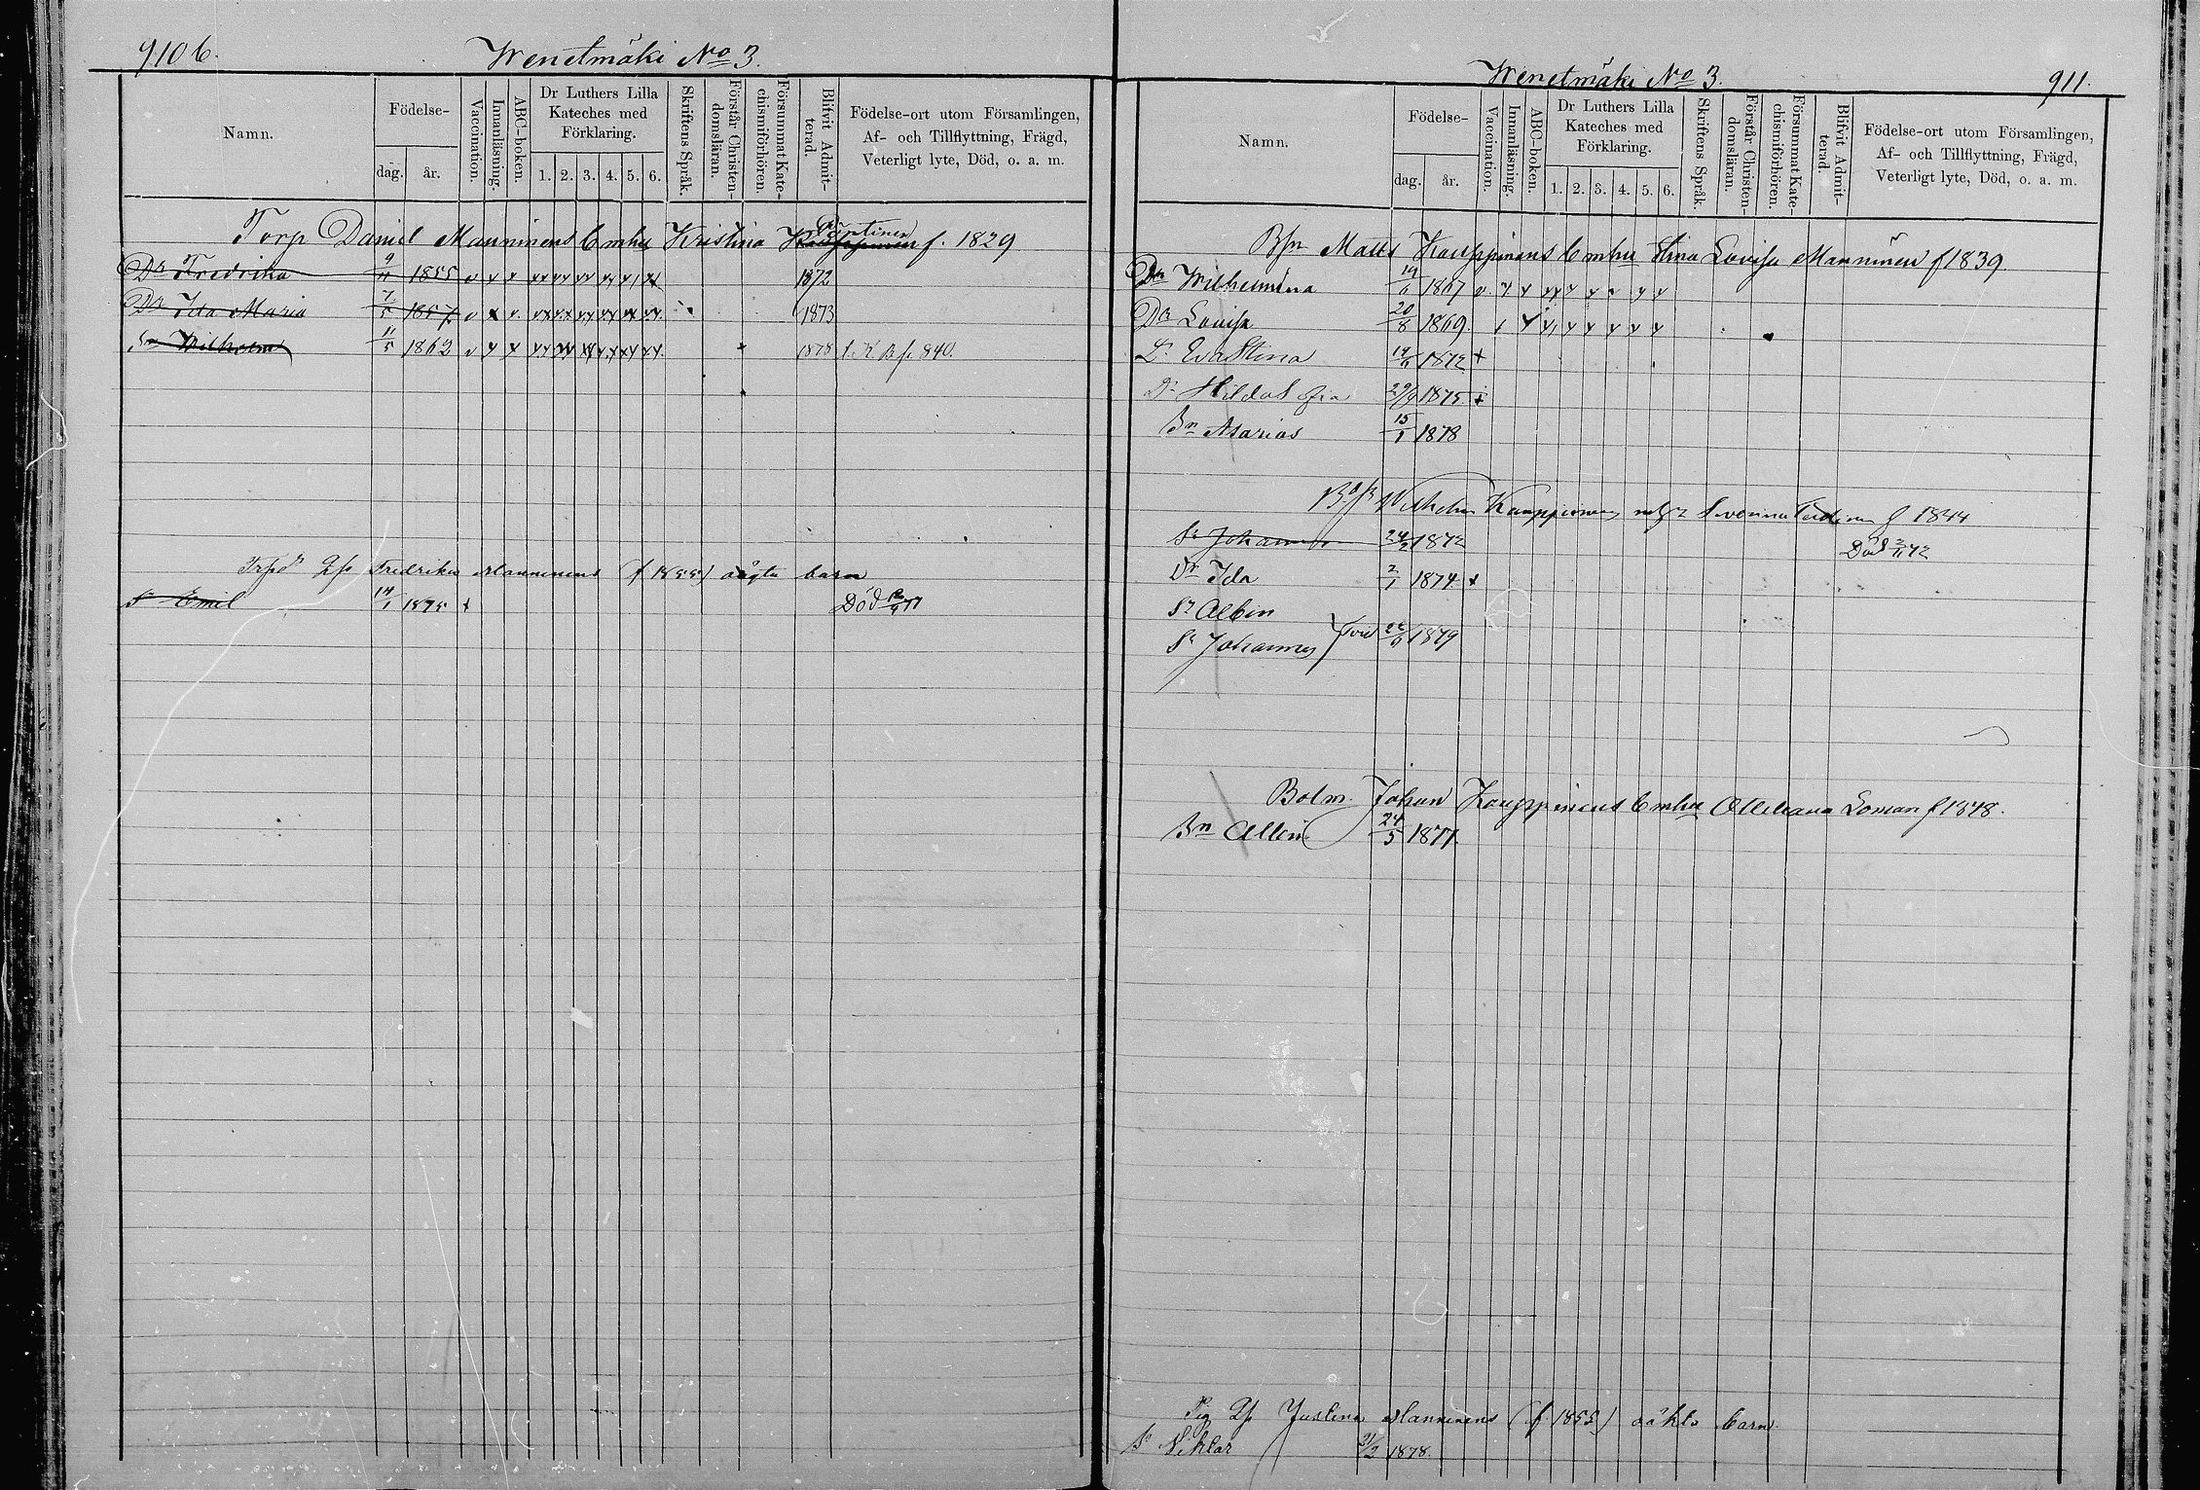 910b.
Wenetmäki No 3.
Namn.
Födelse-
dag.
år.
Vaccination.
Innanläsning.
ABC-boken.
Dr Luthers Lilla Kateches med Förklaring.
1. 2. 3. 4. 5. 6.
Skriftens Språk.
Förstår Christen-domsläran.
Försummat Kate-chismiförhören.
Blifvit Admit-terad.
Födelse-ort utom Församlingen,
Af- och Tillflyttning, Frägd,
Veterligt lyte, Död, o. a. m.
Torp Daniel Manninens Enka Kristina f. 1829
Dr Fredrika 9/11 1855 v x x xx xx xx xx x1 xx 1872
Dr Ida Maria 7/5 1857 v x v. xx xx xx xx xx xx. 1873
Sn Wilhelm 11/5 1862 v x x xx xx xx xx xx xx. 1878 f. K B f. 840.
Fredrika Manninens (f 1855) oägta barn
Sn Emil 14/1 1875 x Död 77
Wenetmäki No 3.
911.
Namn.
Födelse-
dag.
år.
Vaccination.
Innanläsning.
ABC-boken.
Dr Luthers Lilla Kateches med Förklaring.
1. 2. 3. 4. 5. 6.
Skriftens Språk.
Förstår Christen-domsläran.
Försummat Kate-chismiförhören.
Blifvit Admit-terad.
Födelse-ort utom Församlingen,
Af- och Tillflyttning, Frägd,
Veterligt lyte, Död, o. a. m.
Matts Kauppinens Stina Lovisa Manninen f 1839.
Dr Wilhelmina 19/6 1867
Dr Lovisa 20/8 1869.
Dr Eva Stina 14/6 1872 x
Dr Hilda Sofia 29/9 1875. x
Sn Asarias 15/1 1878
Wilhelm Kauppinens f 1844
Sn Johannes 24/2 1872 Död 2/11 72
Dr Ida 2/1 1874 x
Sn Albin
Sn Johannes 22/9 1879
Johan Kauppinens Loman f 1848.
Sn Albin 24/5 1877.
Pig Justina Manninens (f 1855) oäkta barn.
Sn Viktor 21/2 1878.